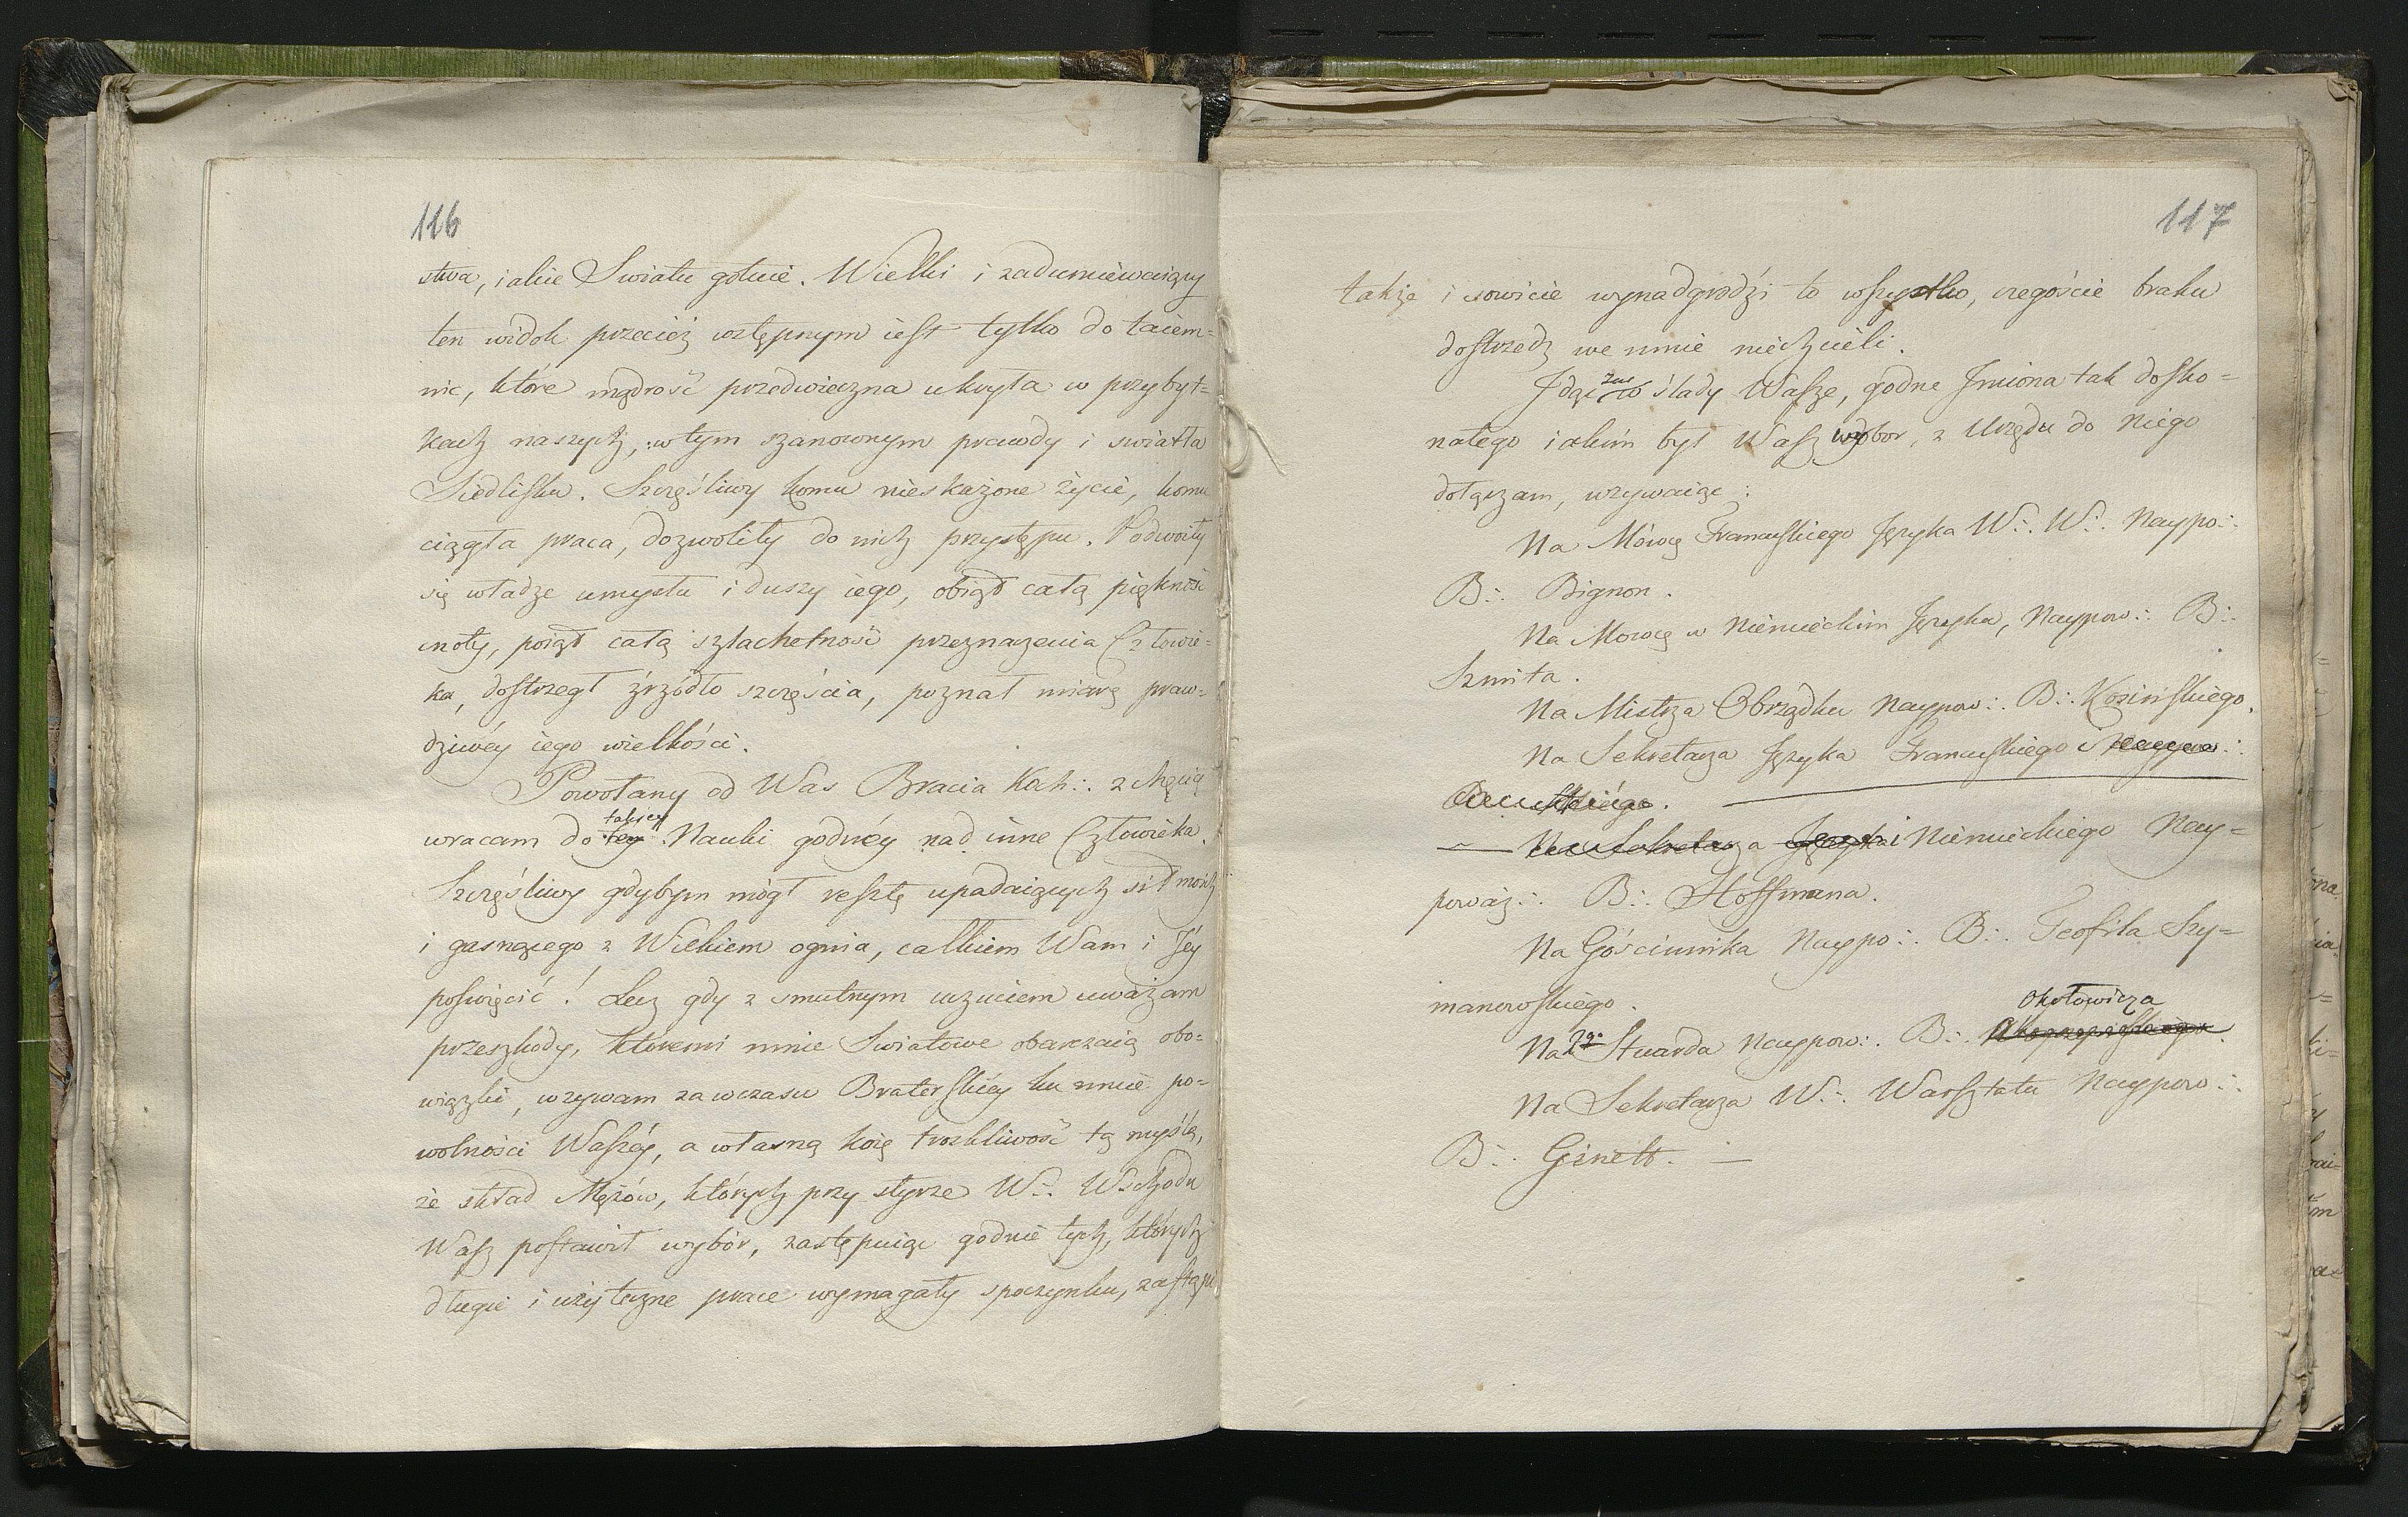 116
stwa, iakie Swiatu gotuie. Wielki i zadumiewaiący
ten widok przecież wstępnym iest tylko do taiem=
nic, które mądrość przedwieczna ukryła w przybyt=
kach naszych, w tym szanownym prawdy i swiatła
Siedlisku. Szczęśliwy komu nieskażone życie, komu
ciągła praca, dozwoliły do nich przystępu. Podwoiły
się władze umysłu i duszy iego, obiął całą piękność
cnoty, poiął całą szlachetność przeznaczenia Człowie=
ka, dostrzegł źrzódło szczęścia, poznał miarę praw=
dziwéy iego wielkości.
Powołany od Was Bracia Koch:. z chęcią
takiey
wracam do tey Nauki godnéy nad inne Człowieka.
Szczęśliwy gdybym mógł resztę upadaiących sił moich
i gasnącego z Wiekiem ognia, całkiem Wam i Jéy
poswięcić! Lecz gdy z smutnym uczuciem uważam
przeszkody, któremi mnie Swiatowe obarczaią obo=
wiązki, wzywam zawczasu Braterskiéy ku mnie po=
wolności Waszéy, a własną koię troskliwość tą myślą,
że skład Mężów, których przy styrze W:. Wschodu
Wasz postawił wybór, zastępuiąc godnie tych, których
długie i użyteczne prace wymagały spoczynku, zastąpi
117
także i sowicie wynadgrodzi to wszystko, czegoście braku
dostrzedz we mnie niechcieli.
Idąc w ślady Wasze, godne Imiona tak dosko=
nałego iakim był Wasz wybor, z Urzędu do niego
dołączam, wzywaiąc:
Na Mówcę Francuskiego Języka W:. W:. Naypo:.
B:. Bignon.
Na Mowcę w Niemieckim Języku, Naypow:. B:.
Szmita.
Na Mistrza Obrządku Naypow:. B:. Kosińskiego.
Na Sekretarza Języka Francuskiego i Naypow:.
Na Sekretarza Języka i Niemieckiego Nay=
poważ:. B:. Hoffmana.
Na Gościnnika Naypo:. B:. Teofila Szy=
manowskiego.
Okołowicza
Na 2go Stuarda Naypow:. B:.
Na Sekretarza W:. Warsztatu Naypow:.
B:. Ginett. —